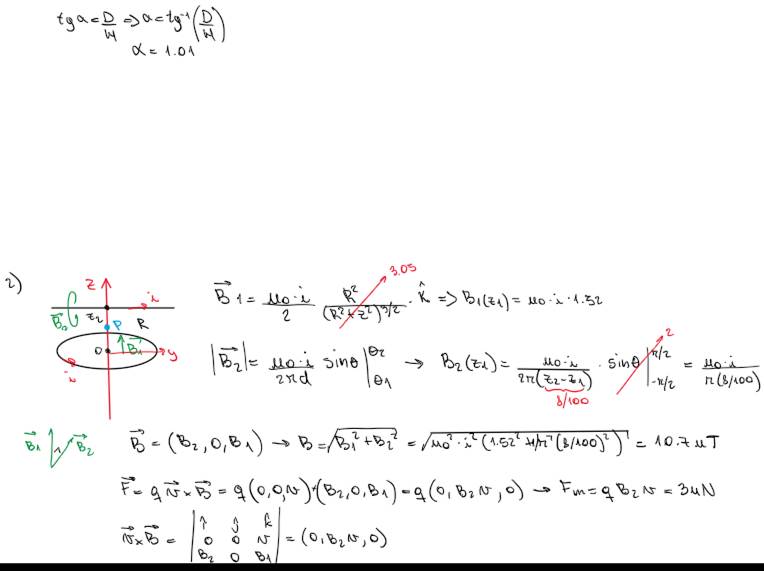 tg α = D/H ⇒ α = tg⁻¹(D/H)
α = 1.01
2)
z
i
z₂
P
R
B₂
0
B₁
y
i
B⃗1 = μ0·i/2 R²/(R²+z²)^3/2 · k̂ ⇒ B₁(z₁) = μ0·i·1.52
3.05
|B⃗₂| = μ0·i/2πd sinθ |θ₂ θ₁ → B₂(z₁) = μ0·i/2π(z₂-z₁) · sinθ |π/2 -π/2 = μ0·i/π(8/100)
2
8/100
B⃗₁ B⃗₂
B⃗ = (B₂,0,B₁) → B = √B₁²+B₂² = √μ0²·i²(1.52²+1/π²(8/100)²) = 10.7 μT
F⃗ = q v⃗×B⃗ = q(0,0,v)·(B₂,0,B₁) = q(0,B₂v,0) → Fm = q B₂v = 3μN
v⃗×B⃗ = | î ĵ k̂
0 0 v
B₂ 0 B₁ | = (0,B₂v,0)